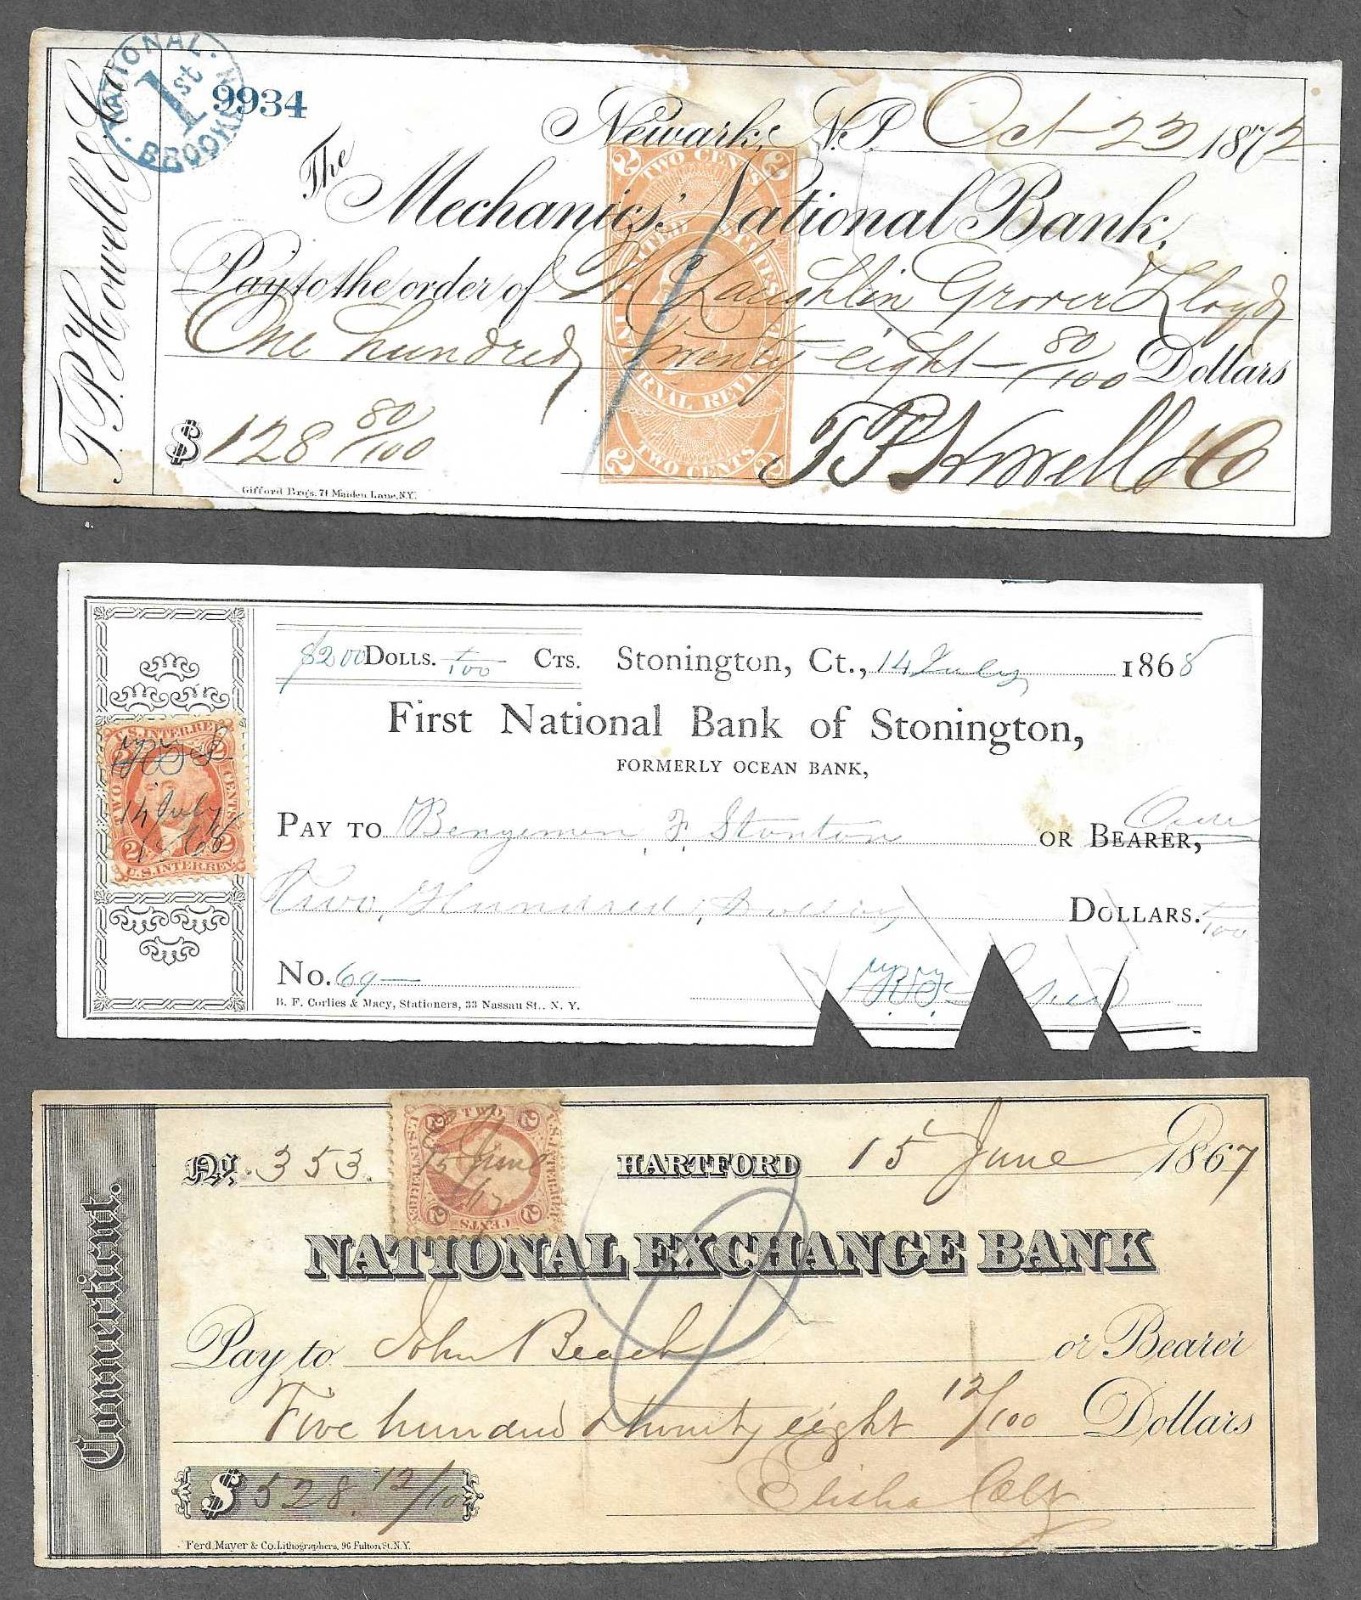 T.P. Howell & Co
NATIONAL
1st
9934
Newark, N.J. Oct 23 1872
The
Mechanics' National Bank,
Pay to the order of McLaughlin Grover Lloyd
One hundred Twenty eight 80/100 Dollars
$128 80/100
T P Howell & Co
Gifford Bros. 71 Maiden Lane, N.Y.
2 TWO CENTS 2
UNITED STATES
INTERNAL REVENUE
2 TWO CENTS 2
$200 DOLLS. /100 CTS. Stonington, Ct., 14 July 1868
First National Bank of Stonington,
FORMERLY OCEAN BANK,
PAY TO Benjemen F Stanton OR BEARER,
Two Hundred, DOLLARS. /100
No. 69
B. F. Corlies & Macy, Stationers, 33 Nassau St., N. Y.
U.S. INTER. REV.
2 2
TWO CENTS
14 July
1868
2 2
U.S. INTER. REV.
Connecticut.
No. 353. HARTFORD 15 June 1867
TWO
2 2
15 June
/67
2 2
CENTS
U.S. INTER. REV.
NATIONAL EXCHANGE BANK
Pay to John Beach or Bearer
Five hundred & twenty eight 12/100 Dollars
$528.12/100
Elisha Colt
Ferd Mayer & Co. Lithographers, 96 Fulton St. N.Y.